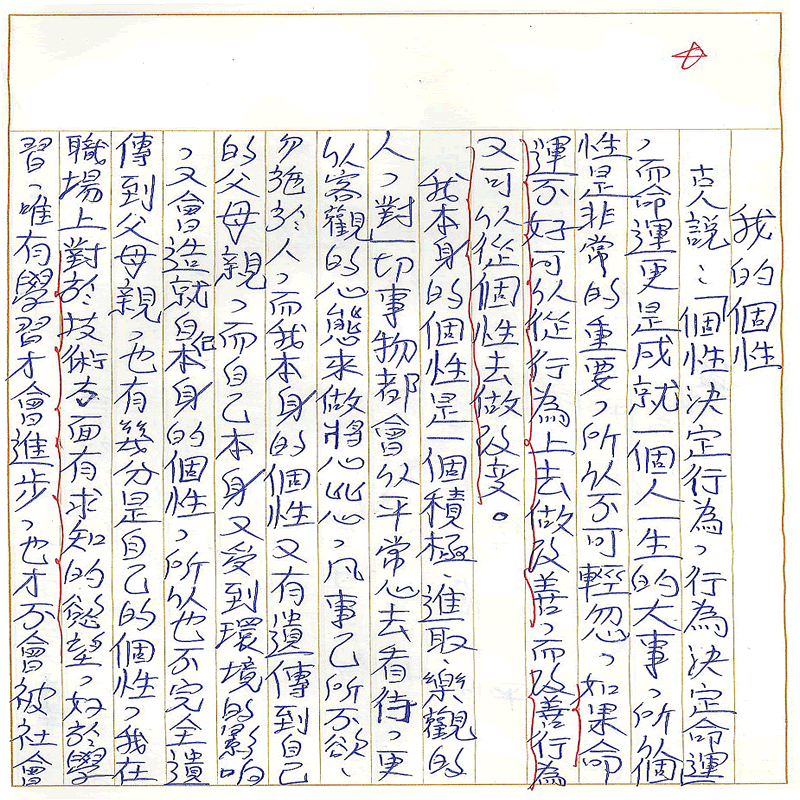 我的個性
古人說：「個性決定行為，行為決定命運
，而命運更是成就一個人一生的大事，所以個
性是非常的重要，所以不可輕忽。如果命
運不好可以從行為上去做改善，而改善行為
又可以從個性去做改變。
我本身的個性是一個積極、進取、樂觀的
人，對一切事物都會以平常心去看待，更
以客觀的心態來做將心比心，凡事己所不欲、
勿施於人，而我本身的個性又有遺傳到自己
的父母親，而自己本身又受到環境的影响
，又會造就自己本身的個性，所以也不完全遺
傳到父母親，也有幾分是自己的個性，我在
職場上對於技術方面有求知的慾望，好於學
習，唯有學習才會進步，也才不會被社會